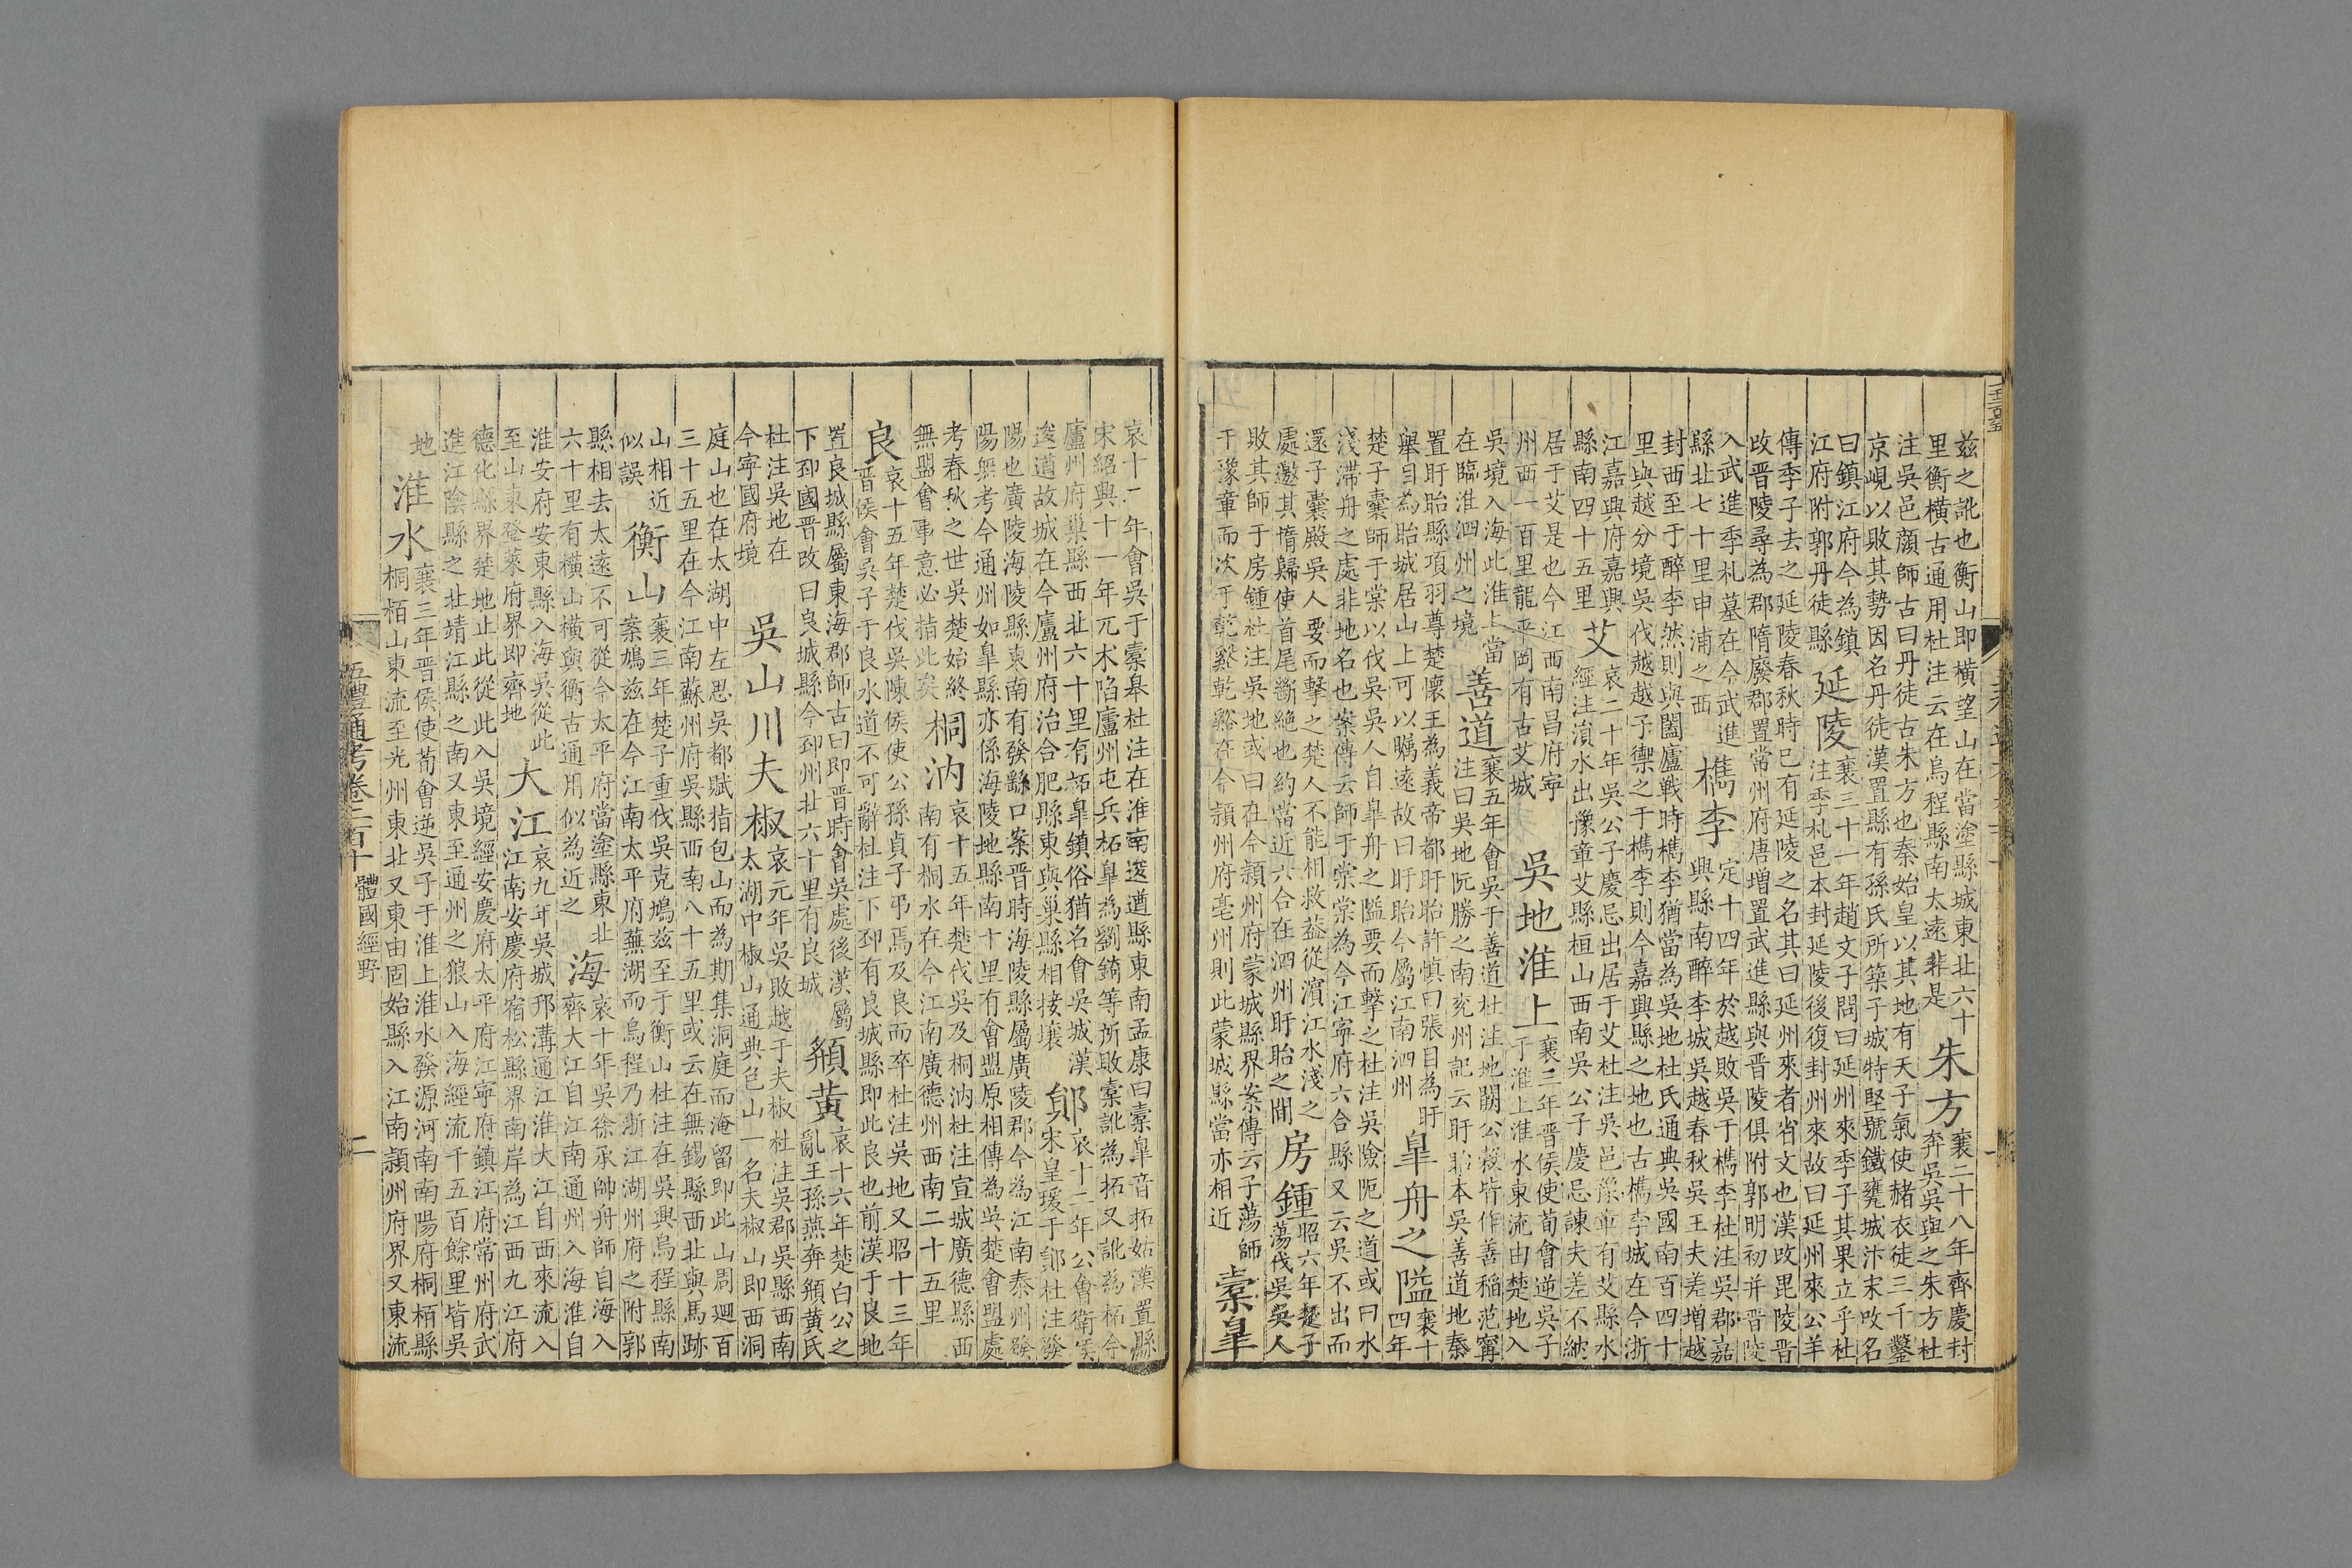 兹之訛也衡山即橫望山在當塗縣城東北六十
里衡橫古通用杜注云在烏程縣南太遠非是
朱方
襄二十八年齊慶封
奔吳吳與之朱方杜
注吳邑顏師古曰丹徒古朱方也秦始皇以其地有天子氣使赭衣徒三千鑿
京峴以敗其勢因名丹徒漢置縣有孫氏所築子城特堅號鐵甕城汴宋攺名
曰鎮江府今為鎮
江府附郭丹徒縣
延陵
襄三十一年趙文子問曰延州來季子其果立乎杜
注季札邑本封延陵後復封州來故曰延州來公羊
傳季子去之延陵春秋時已有延陵之名其曰延州來者省文也漢改毘陵晋
改晋陵尋為郡隋廢郡置常州府唐增置武進縣與晋陵俱附郭明初并晋陵
入武進季札墓在今武進
縣北七十里申浦之西
檇李
定十四年於越敗吳于檇李杜注吳郡嘉
興縣南醉李城吳越春秋吳王夫差增越
封西至于醉李然則與闔廬戰時檇李猶當為吳地杜氏通典吳國南百四十
里與越分境吳伐越越子禦之于檇李則今嘉興縣之地也古檇李城在今浙
江嘉興府嘉興
縣南四十五里
艾
哀二十年吳公子慶忌出居于艾杜注吳邑豫章有艾縣水
經注濆水出豫章艾縣桓山西南吳公子慶忌諫夫差不納
居于艾是也今江西南昌府寧
州西一百里龍平岡有古艾城
吳地淮上
襄三年晋侯使荀會逆吳子
于淮上淮水東流由楚地入
吳境入海此淮上當
在臨淮泗州之境
善道
襄五年會吳于善道杜注地闕公榖皆作善稲范寗
注曰吳地阮勝之南兖州記云盱眙本吳善道地秦
置盱眙縣項羽尊楚懷王為義帝都盱眙許慎曰張目為盱
舉目為眙城居山上可以矚遠故曰盱眙今屬江南泗州
皐舟之隘
襄十
四年
楚子囊師于棠以伐吳吳人自皐舟之隘要而擊之杜注吳險阨之道或曰水
淺滯舟之處非地名也案傳云師于棠棠為今江寧府六合縣又云吳不出而
還子囊殿吳人要而擊之楚人不能相救葢從濱江水淺之
處邀其惰歸使首尾斷絕也約當近六合在泗州盱眙之間
房鍾
昭六年楚子
蕩伐吳吳人
敗其師于房鍾杜注吳地或曰在今潁州府蒙城縣界案傳云子蕩師
于豫章而次于乾谿乾谿在今潁州府亳州則此蒙城縣當亦相近
橐皐
哀十二年會吳于橐皋杜注在淮南逡遒縣東南孟康曰橐皐音拓姑漢置縣
宋紹興十一年兀术陷廬州屯兵柘皐為劉錡等所敗橐訛為拓又訛為柘今
廬州府巢縣西北六十里有柘皐鎮俗猶名會吳城漢
逡遒故城在今廬州府治合肥縣東與巢縣相接壤
鄖
哀十二年公會衛侯
宋皇瑗于鄖杜注發
陽也廣陵海陵縣東南有發繇口案晋時海陵縣屬廣陵郡今為江南泰州發
陽無考今通州如皐縣亦係海陵地縣南十里有會盟原相傳為吳楚會盟處
考春秋之世吳楚始終
無盟會事意必指此矣
桐汭
哀十五年楚伐吳及桐汭杜注宣城廣德縣西
南有桐水在今江南廣德州西南二十五里
良
哀十五年楚伐吳陳侯使公孫貞子弔焉及良而卒杜注吳地又昭十三年
晋侯會吳子于良水道不可辭杜注下邳有良城縣即此良也前漢于良地
置良城縣屬東海郡師古曰即晋時會吳處後漢屬
下邳國晋改曰良城縣今邳州北六十里有良城
頯黃
哀十六年楚白公之
亂王孫燕奔頯黃氏
杜注吳地在
今寧國府境
吳山川夫椒
哀元年吳敗越于夫椒杜注吳郡吳縣西南
太湖中椒山通典包山一名夫椒山即西洞
庭山也在太湖中左思吳都賦指包山而為期集洞庭而淹留即此山周廻百
三十五里在今江南蘇州府吳縣西南八十五里或云在無錫縣西北與馬跡
山相近
似誤
衡山
襄三年楚子重伐吳克鳩兹至于衡山杜注在吳興烏程縣南
案鳩兹在今江南太平府蕪湖而烏程乃浙江湖州府之附郭
縣相去太遠不可從今太平府當塗縣東北
六十里有橫山橫與衡古通用似為近之
海
哀十年吳徐承帥舟師自海入
齊大江自江南通州入海淮自
淮安府安東縣入海吳從此
至山東登萊府界即齊地
大江
哀九年吳城邗溝通江淮大江自西來流入
江南安慶府宿松縣界南岸為江西九江府
德化縣界楚地止此從此入吳境經安慶府太平府江寧府鎮江府常州府武
進江陰縣之北靖江縣之南又東至通州之狼山入海經流千五百餘里皆吳
地
淮水
襄三年晋侯使荀會逆吳子于淮上淮水發源河南南陽府桐栢縣
桐栢山東流至光州東北又東由固始縣入江南潁州府界又東流
五禮通考卷二百十
體國經野
二